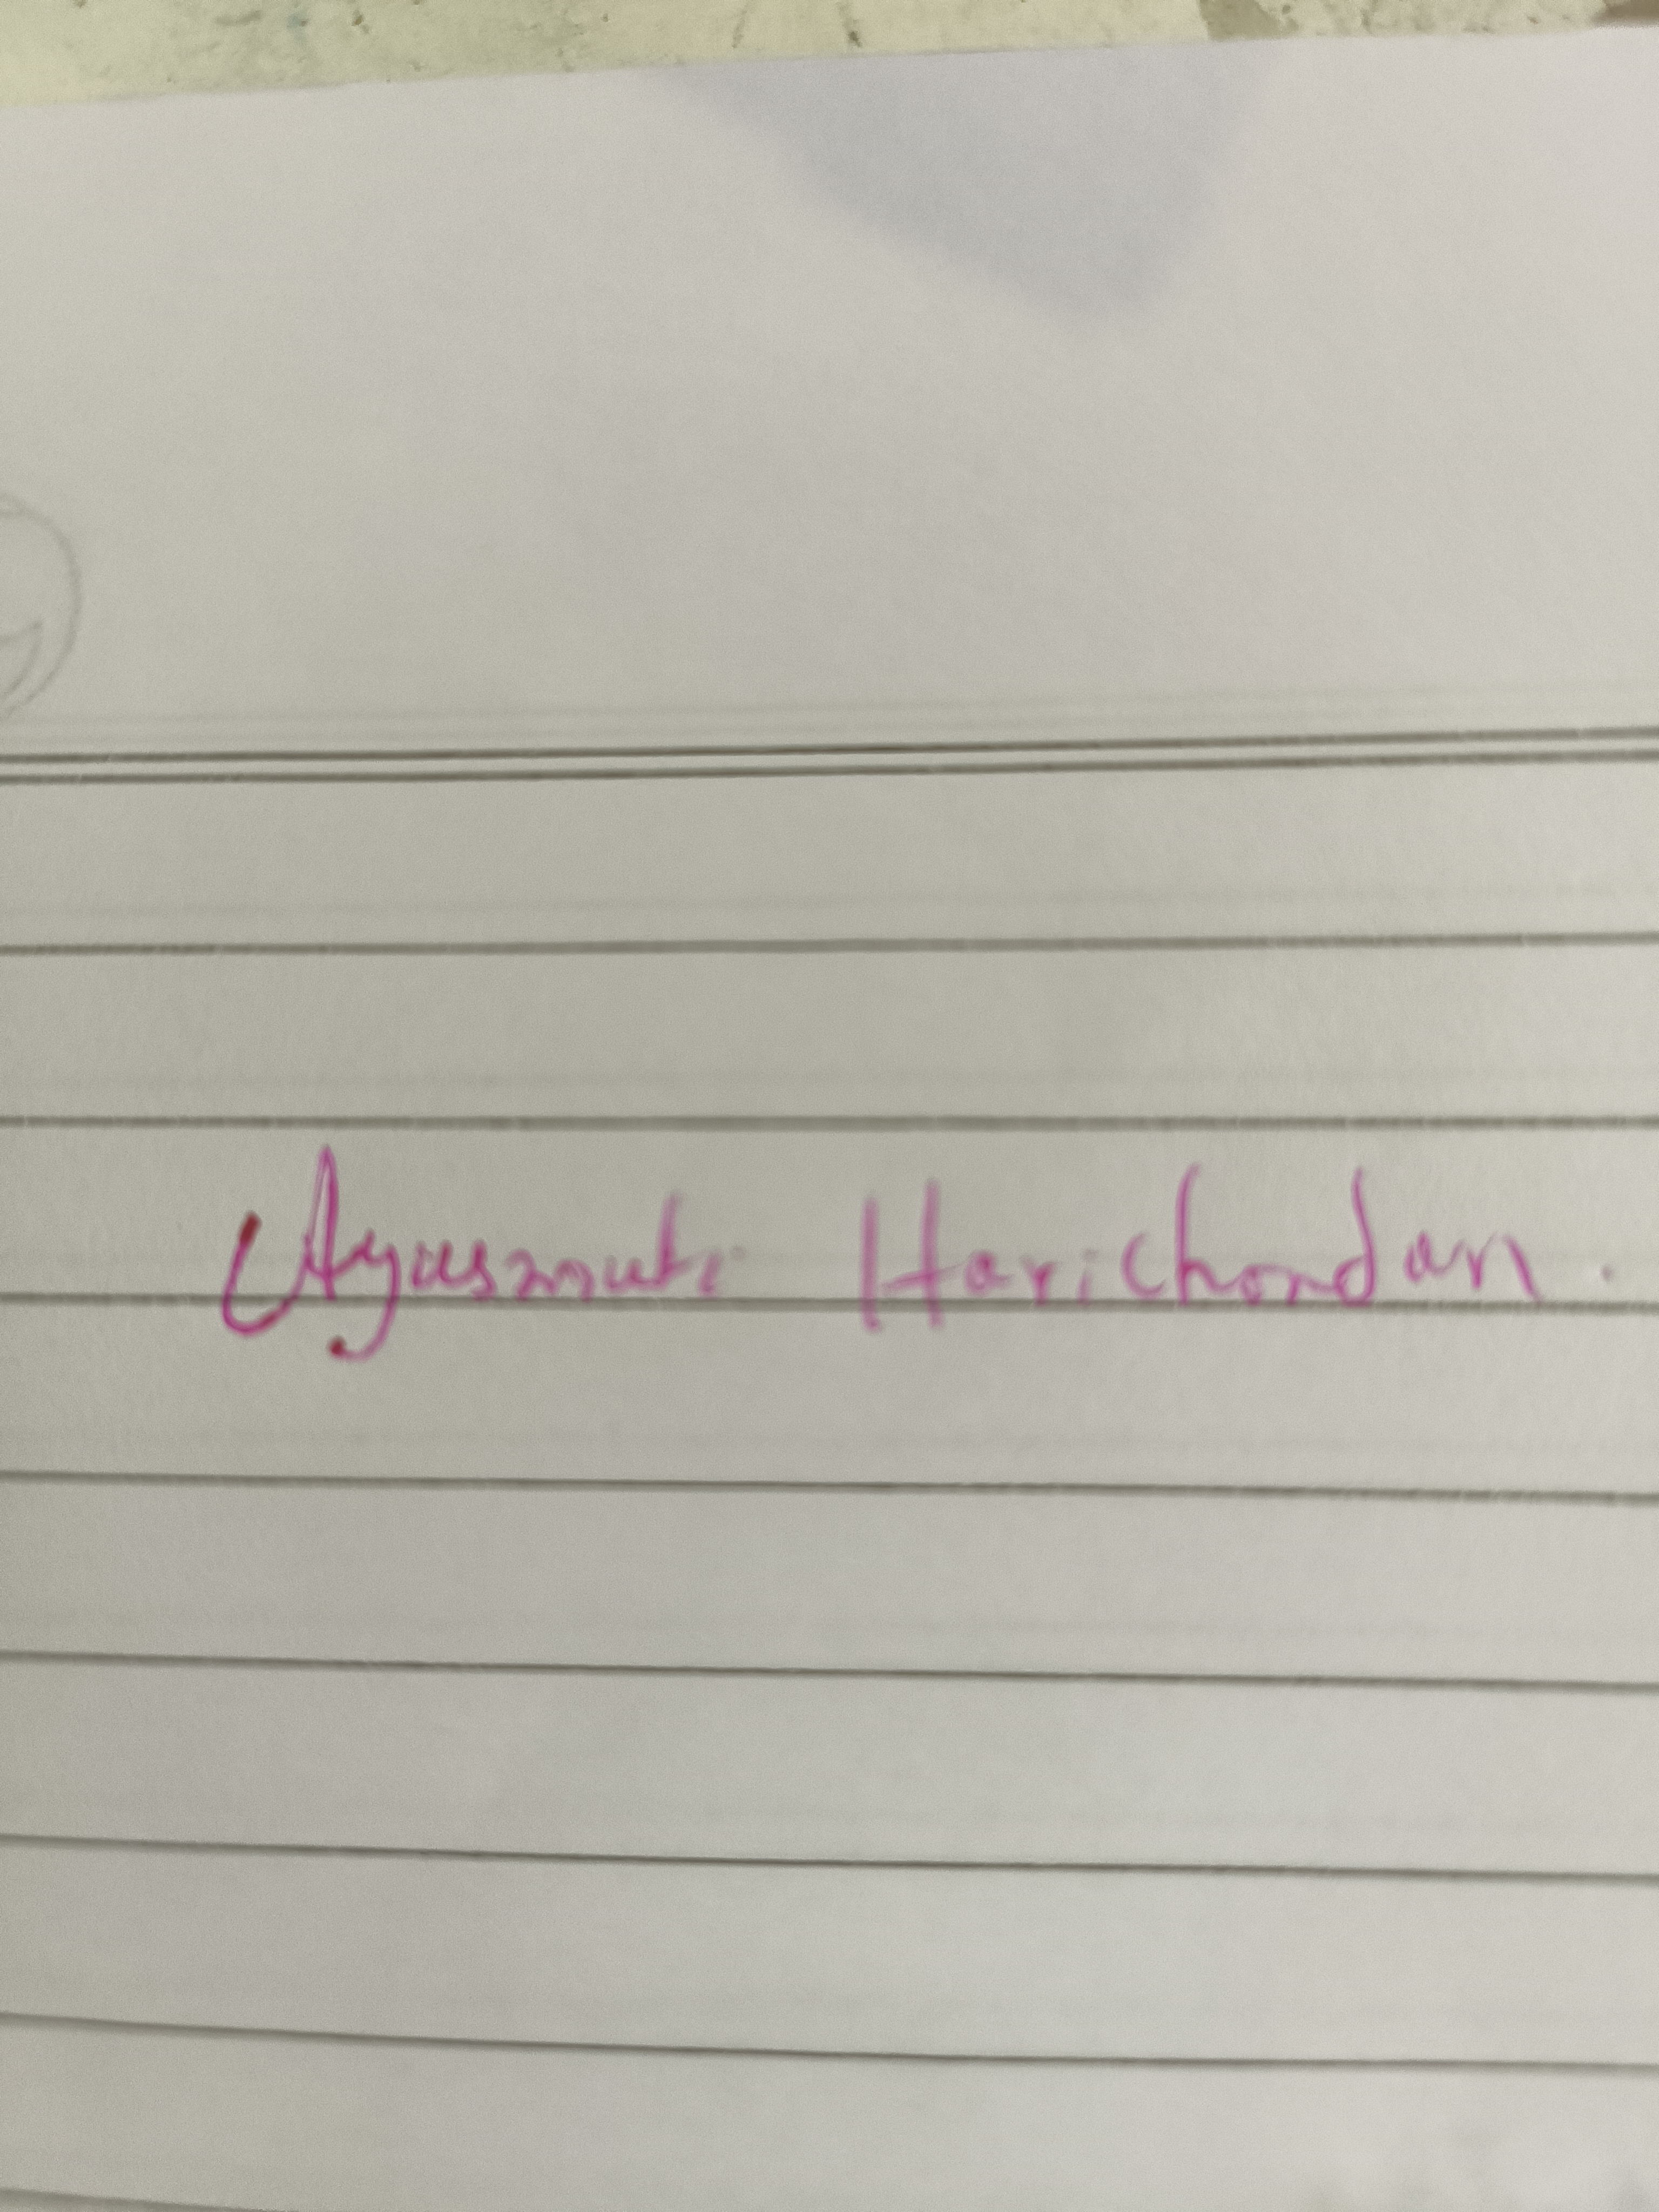 Ayusmati Harichandan.